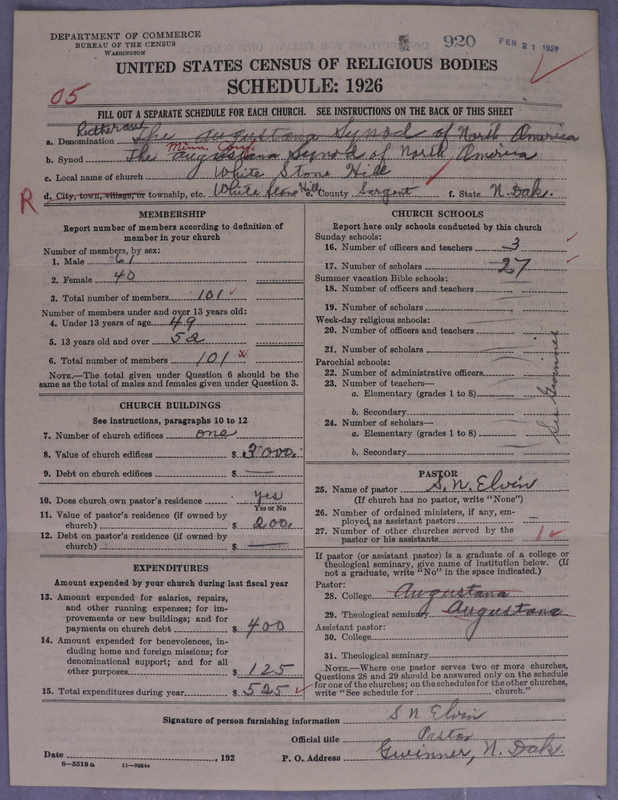 DEPARTMENT OF COMMERCE
BUREAU OF THE CENSUS
WASHINGTON
920 FEB 21 1928
UNITED STATES CENSUS OF RELIGIOUS BODIES
SCHEDULE: 1926
05
FILL OUT A SEPARATE SCHEDULE FOR EACH CHURCH. SEE INSTRUCTIONS ON THE BACK OF THIS SHEET
a. Denomination Lutheran The Augustana Synod of North America
b. Synod The Augustana Synod of North America
Minn. Conf.
c. Local name of church White Stone Hill
R d. City, town, village, or township, etc. White Stone Hill e. County Sargent f. State N. Dak.
MEMBERSHIP
Report number of members according to definition of
member in your church
Number of members, by sex:
1. Male 61
2. Female 40
3. Total number of members 101
Number of members under and over 13 years old:
4. Under 13 years of age 49
5. 13 years old and over 52
6. Total number of members 101
NOTE.—The total given under Question 6 should be the
same as the total of males and females given under Question 3.
CHURCH BUILDINGS
See instructions, paragraphs 10 to 12
7. Number of church edifices one
8. Value of church edifices $ 3000.
9. Debt on church edifices $ —
10. Does church own pastor's residence Yes
Yes or No
11. Value of pastor's residence (if owned by
church) $ 200.
12. Debt on pastor's residence (if owned by
church) $ —
EXPENDITURES
Amount expended by your church during last fiscal year
13. Amount expended for salaries, repairs,
and other running expenses; for im-
provements or new buildings; and for
payments on church debt $ 400
14. Amount expended for benevolences, in-
cluding home and foreign missions; for
denominational support; and for all
other purposes $ 125
15. Total expenditures during year $ 525
CHURCH SCHOOLS
Report here only schools conducted by this church
Sunday schools:
16. Number of officers and teachers 3
17. Number of scholars 27
Summer vacation Bible schools:
18. Number of officers and teachers
19. Number of scholars
Week-day religious schools:
20. Number of officers and teachers
21. Number of scholars
Parochial schools:
22. Number of administrative officers
23. Number of teachers—
a. Elementary (grades 1 to 8)
b. Secondary
24. Number of scholars—
a. Elementary (grades 1 to 8)
b. Secondary
See Gwinner
PASTOR
25. Name of pastor S. N. Elvin
(If church has no pastor, write "None")
26. Number of ordained ministers, if any, em-
ployed as assistant pastors —
27. Number of other churches served by the
pastor or his assistants 1
If pastor (or assistant pastor) is a graduate of a college or
theological seminary, give name of institution below. (If
not a graduate, write "No" in the space indicated.)
Pastor:
28. College Augustana
29. Theological seminary Augustana
Assistant pastor:
30. College
31. Theological seminary
NOTE.—Where one pastor serves two or more churches,
Questions 28 and 29 should be answered only on the schedule
for one of the churches; on the schedules for the other churches,
write "See schedule for church."
Signature of person furnishing information S N Elvin
Official title Pastor
Date , 192 P. O. Address Gwinner, N. Dak.
8—5518 a